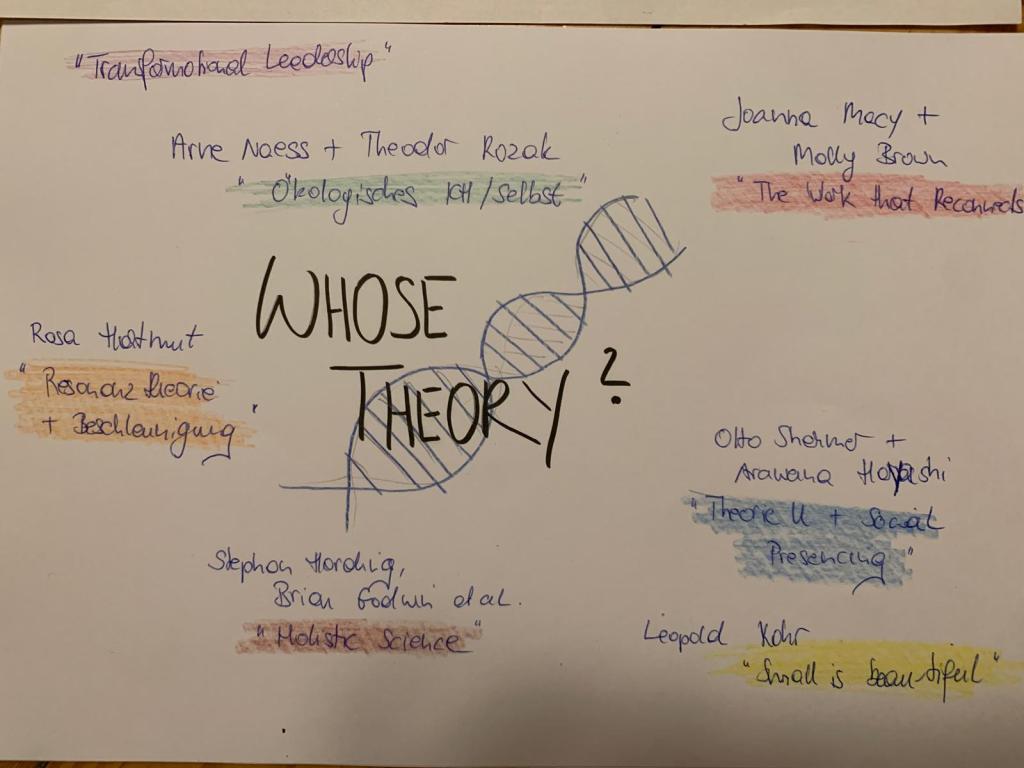 "Transformational Leadership"
Arne Naess + Theodor Rozak
"Ökologisches ICH/Selbst"
Joanna Macy +
Molly Brown
"The Work that Reconnects
WHOSE
THEORY?
Rosa Hartmut
"Resonanztheorie
+ Beschleunigung"
Otto Shermer +
Arawana Hayashi
"Theorie U + Social
Presencing"
Stephan Harding,
Brian Godwin et al.
"Holistic Science"
Leopold Kohr
"Small is beautiful"